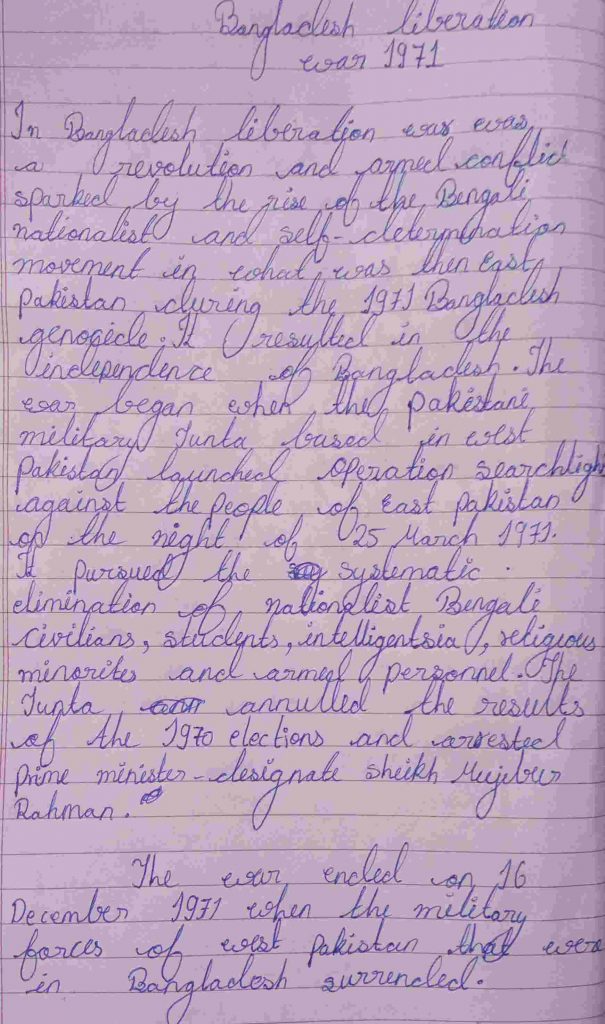 Bangladesh liberation
war 1971
In Bangladesh liberation war was
a revolution and armed conflict
sparked by the rise of the Bengali
nationalist and self-determination
movement in what was then East
pakistan during the 1971 Bangladesh
genocide. It resulted in the
independence of Bangladesh. The
war began when the pakistani
military Junta based in west
Pakistan launched operation searchlight
against the people of East pakistan
on the night of 25 March 1971.
It pursued the systematic
elimination of nationalist Bengali
civilians, students, intelligentsia, religious
minorites and armed personnel. The
Junta annulled the results
of the 1970 elections and arrested
prime minister-designate sheikh Mujibur
Rahman.
The war ended on 16
December 1971 when the military
forces of west pakistan that were
in Bangladesh surrended.